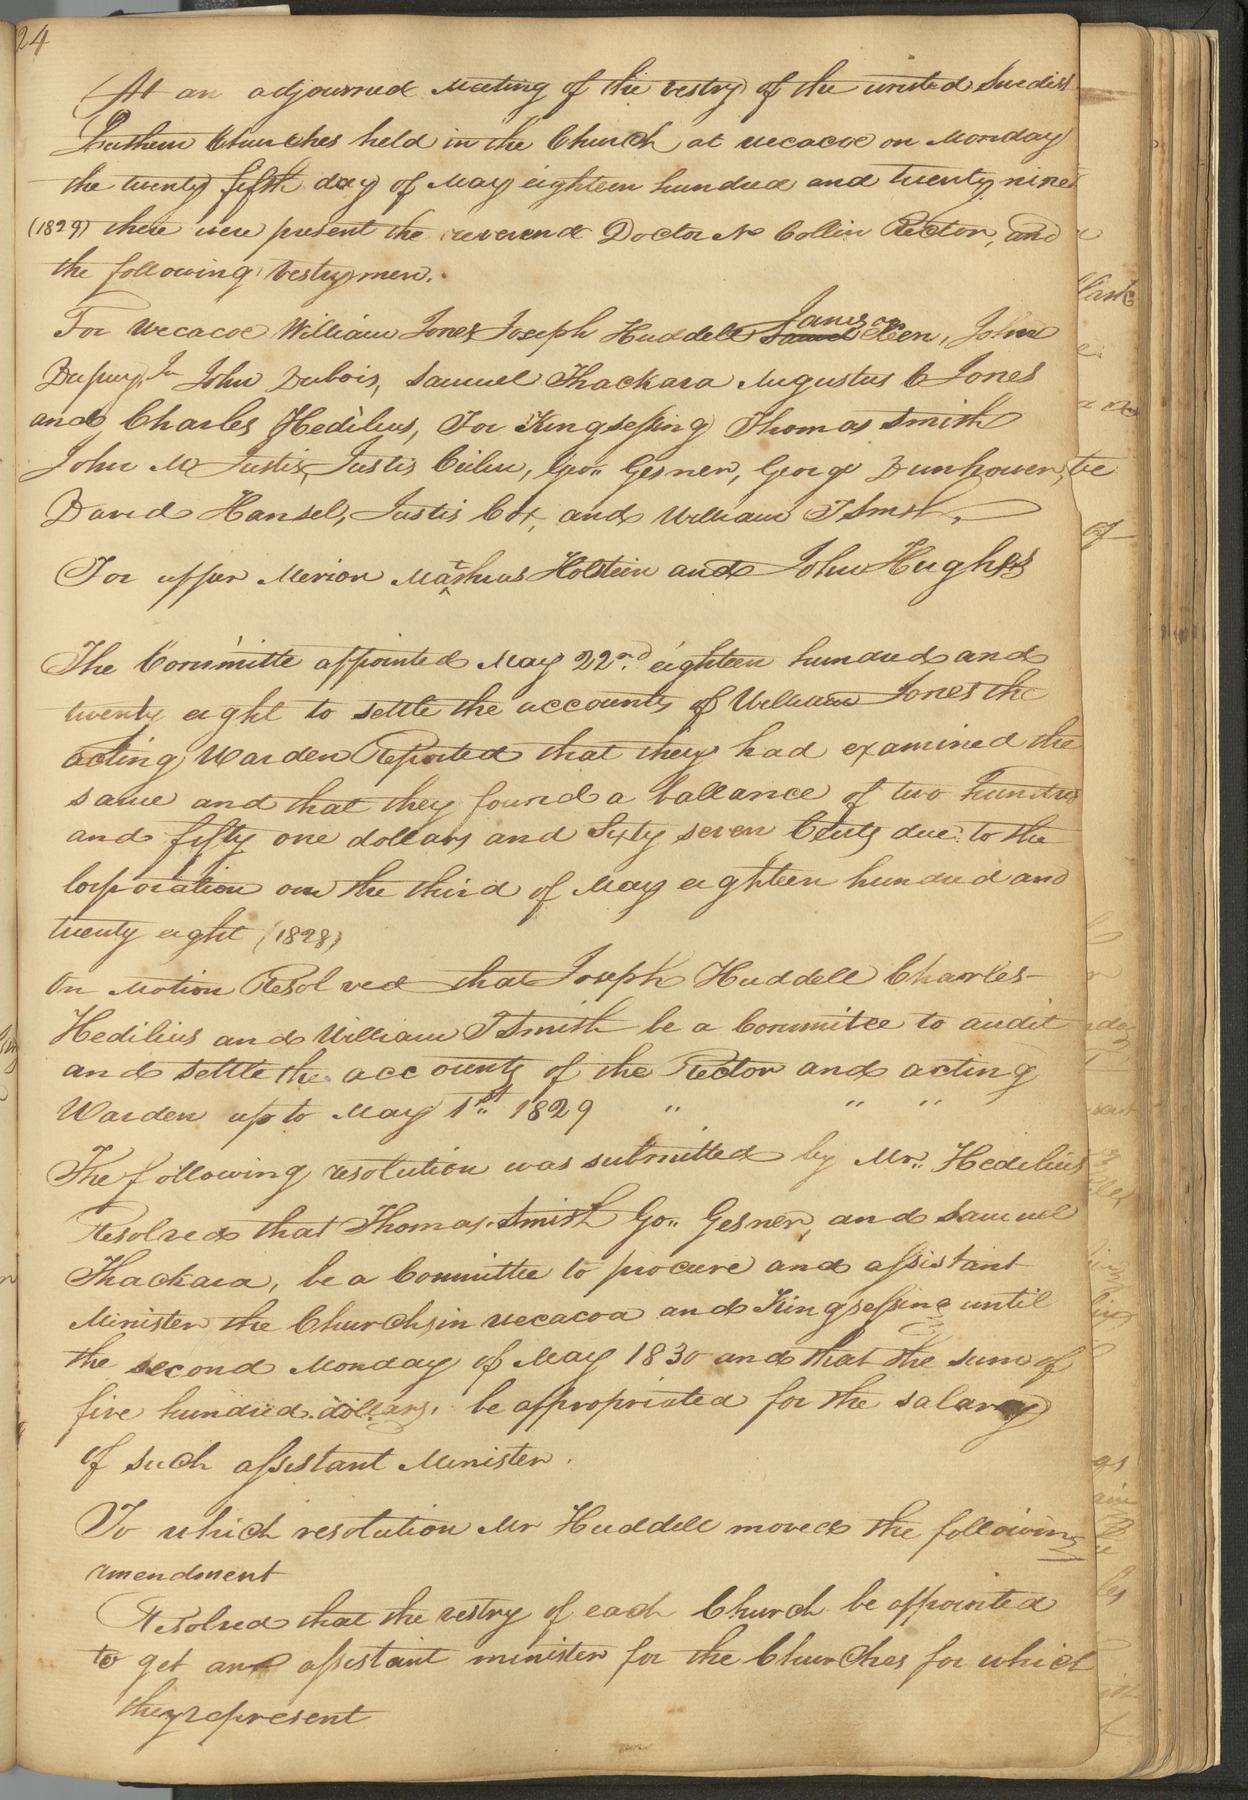 24
At an adjourned Meeting of the vestry of the united Swedish
Luthern Churches held in the Church at wecacoe on Monday
the twenty fifth day of May eighteen hundred and twenty nine
(1829) there were present the reverend Doctor Ns Collin Rector, and
the following Vestrymen.
For Wecacoe William Jones Joseph Huddell James Keen, John
Dupuy, Jr John Dubois, Samuel Thackara Augustus C Jones
and Charles Hedilius, For Kingsessing Thomas Smith
John M Justis, Justis Ceilin, Geo.. Gesner, George Dunhower,
David Hansel, Justis Cox, and William T Smith,
For upper Merion Mathias Holstein and John Hughes
The Committe appointed May 22nd eighteen hundred and
twenty eight to settle the accounts of William Jones the
acting Warden Reported that they had examined the
same and that they found a ballance of two hundred
and fifty one dollars and Sixty seven Cents due to the
Corporation on the third of May eighteen hundred and
twenty eight (1828)
On Motion Resolved that Joseph Huddell Charles
Hedilius and William T Smith be a Commitee to audit
and settle the accounts of the Rector and acting
Warden up to May 1st 1829 " " "
The following resolution was submitted by Mr.. Hedilius
Resolved that Thomas Smith Go.. Gesner, and Samuel
Thackara, be a Committee to procure and assistant
Minister the Church in wecacoa and Kingsessing until
the second Monday of May 1830 and that the sum of
five hundred dollars, be appropriated for the salary
of such assistant Minister.
To which resolution Mr Huddell moved the following
amendment
Resolved that the vestry of each Church be appointed
to get an assistant minister for the Churches for which
they represent